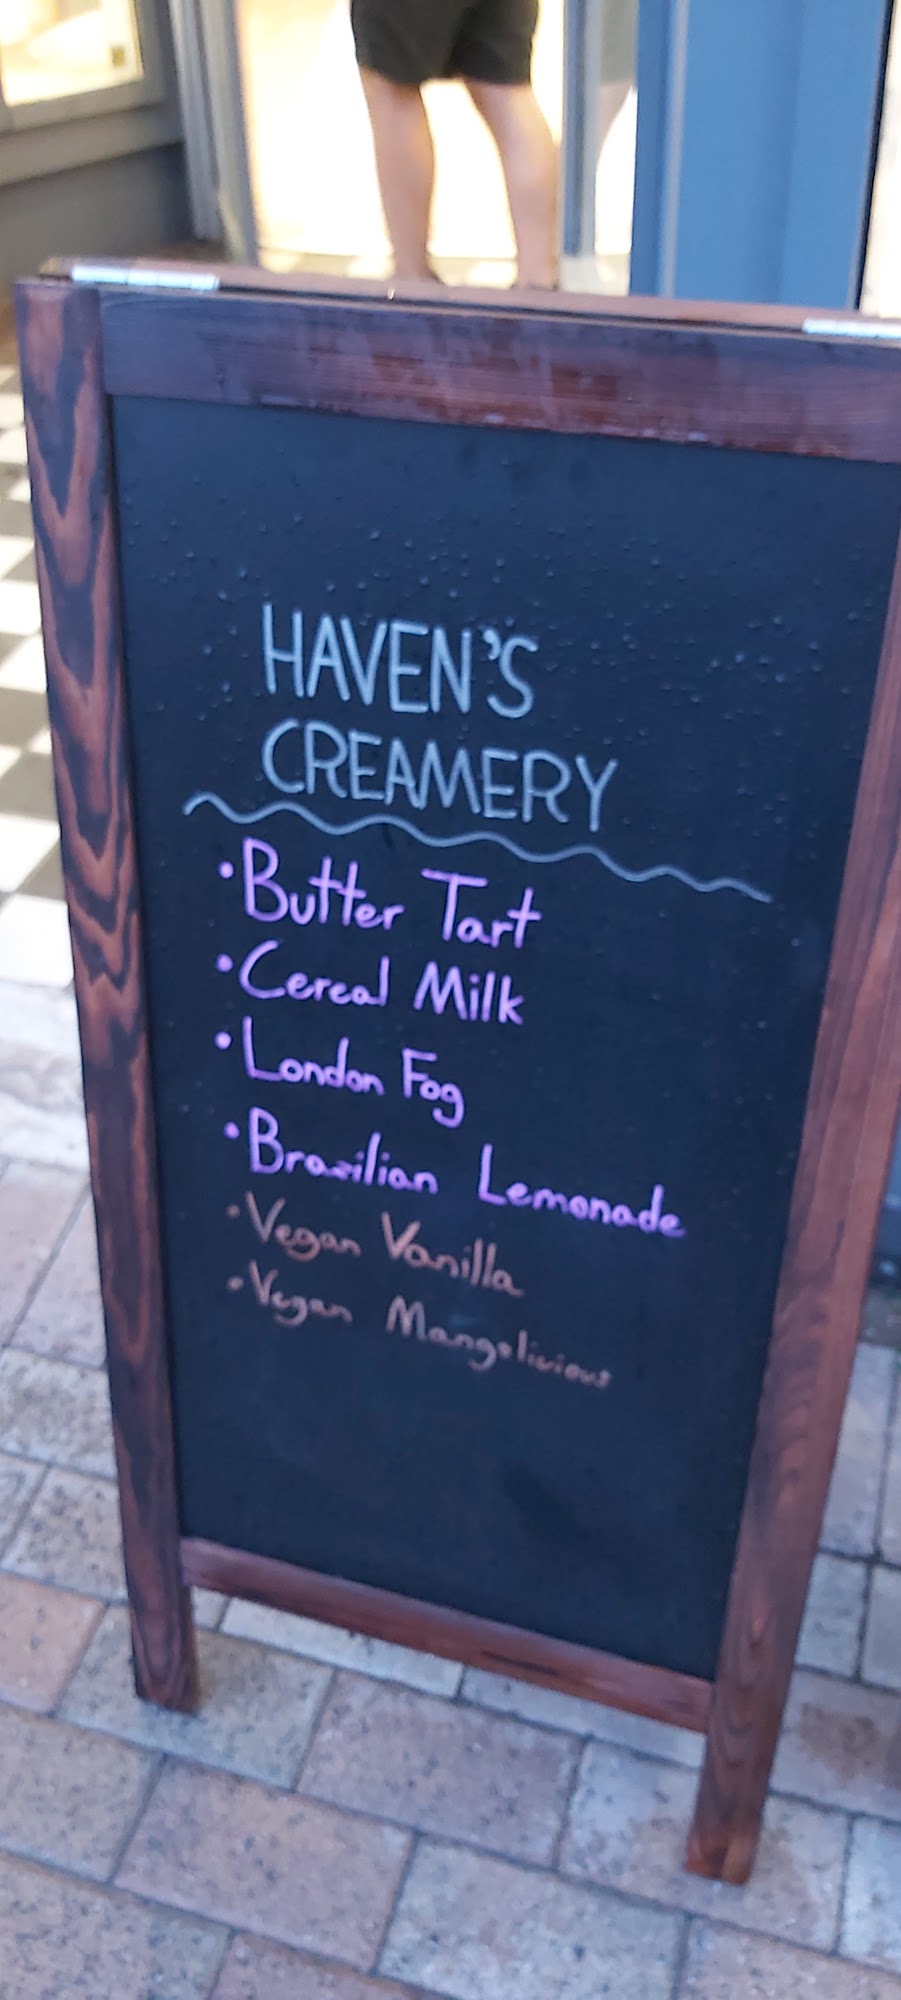 HAVEN'S
CREAMERY
• Butter Tart
• Cereal Milk
• London Fog
• Brazilian Lemonade
• Vegan Vanilla
• Vegan Mangolicious